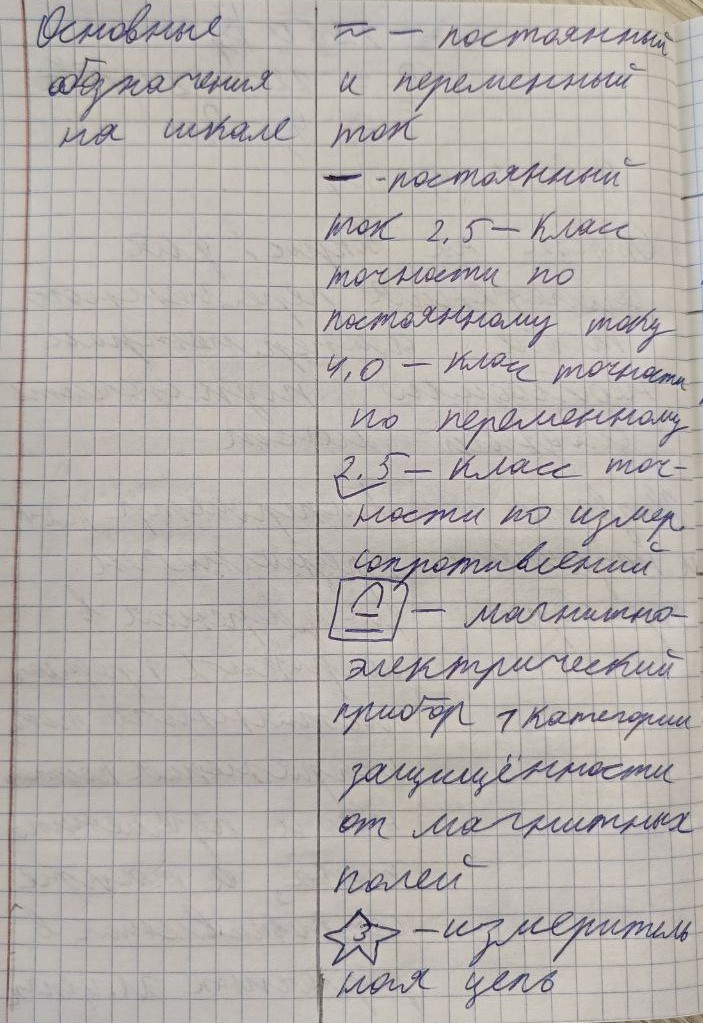 Основные
обозначения
на шкале
≂ — постоянный
и переменный
ток
— - постоянный
ток 2,5 — Класс
точности по
постоянному току
4,0 — класс точности
по переменному
2.5 — класс точ-
ности по измер.
сопротивлений
— магнитно-
электрический
прибор 1 категории
защищённости
от магнитных
полей
3 — измеритель
ная цепь